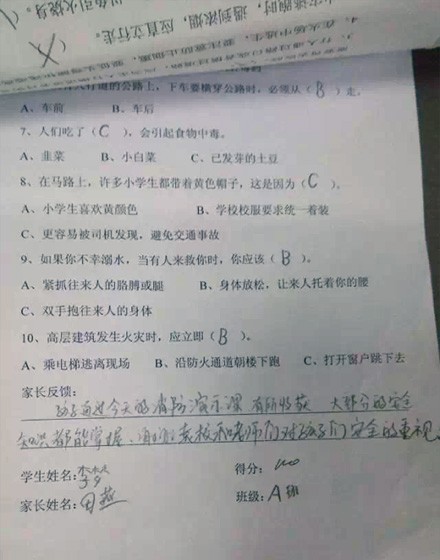 遇到浓烟，应直立行走。
以免引火烧身。
的公路上，下车要横穿公路时，必须从（B）走。
A、车前 B、车后
7、人们吃了（C），会引起食物中毒。
A、韭菜 B、小白菜 C、已发芽的土豆
8、在马路上，许多小学生都带着黄色帽子，这是因为（C）。
A、小学生喜欢黄颜色 B、学校校服要求统一着装
C、更容易被司机发现，避免交通事故
9、如果你不幸溺水，当有人来救你时，你应该（B）。
A、紧抓往来人的胳膊或腿 B、身体放松，让来人托着你的腰
C、双手抱往来人的身体
10、高层建筑发生火灾时，应立即（B）。
A、乘电梯逃离现场 B、沿防火通道朝楼下跑 C、打开窗户跳下去
家长反馈：
孩子通过今天的消防演示课有所收获 大部分的安全
知识都能掌握、谢谢贵校和老师们对孩子们安全的重视
学生姓名： 得分：100
家长姓名：田燕 班级：A班